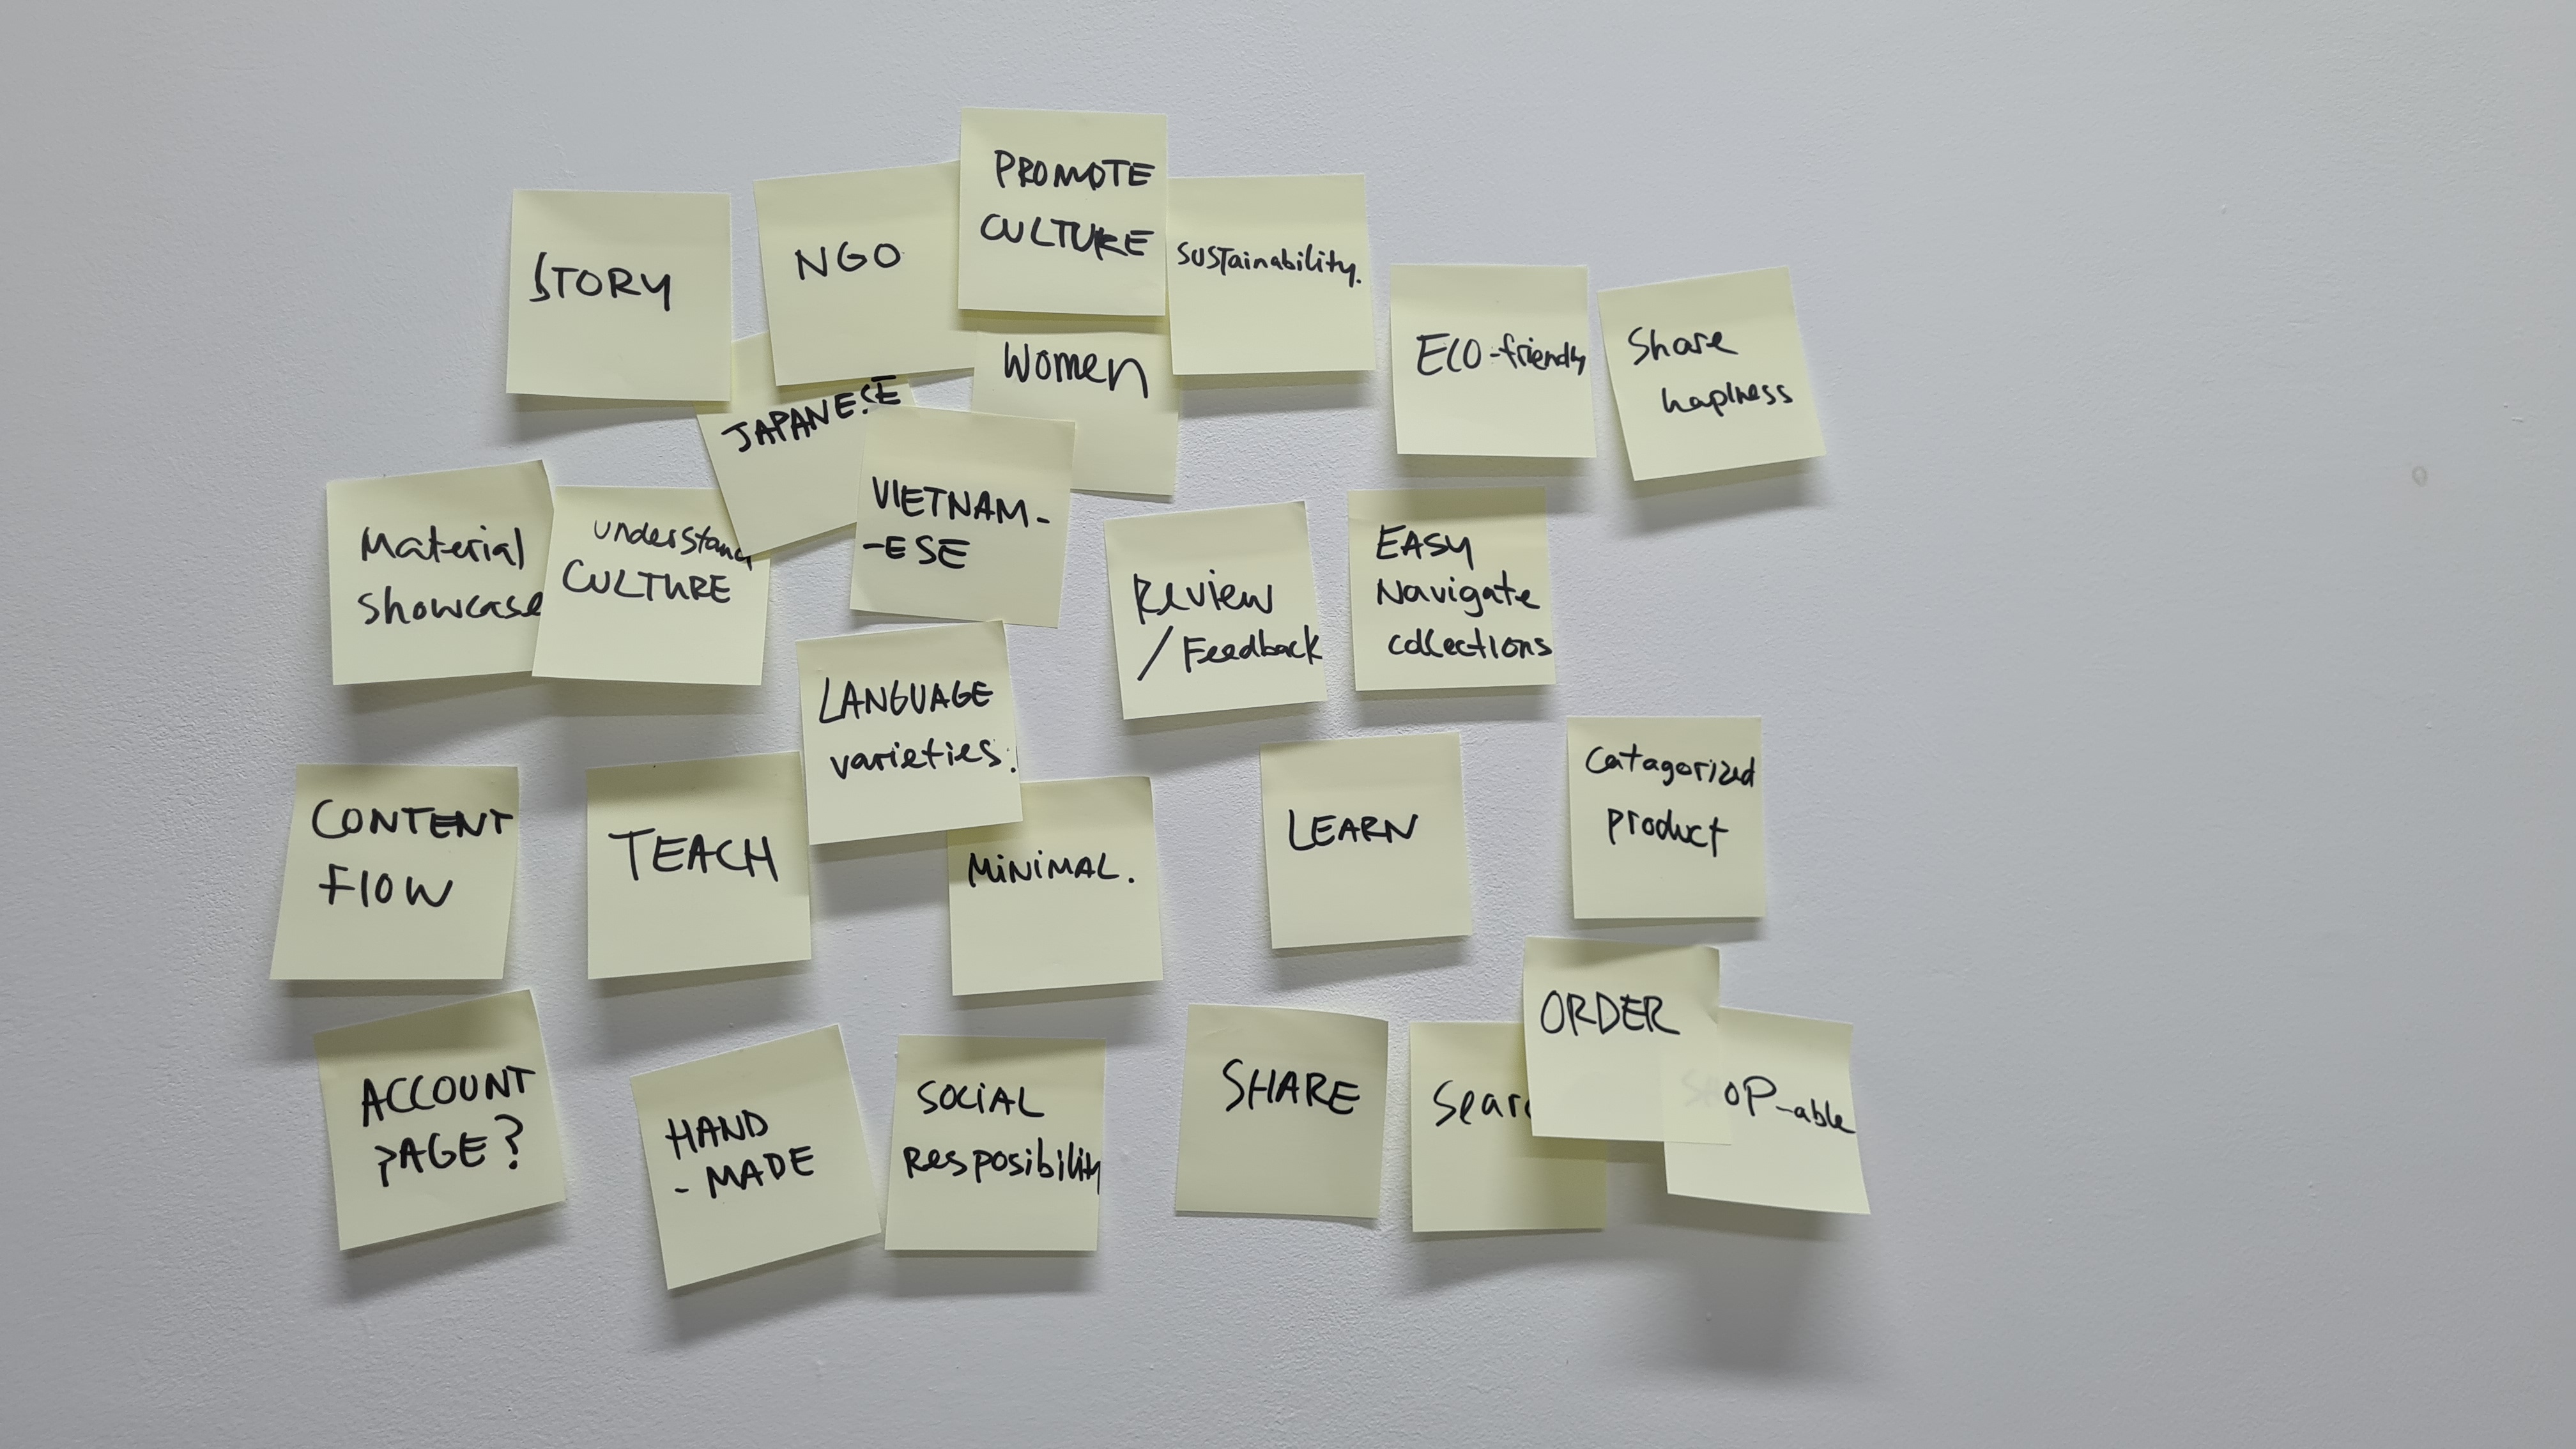 STORY
NGO
PROMOTE
CULTURE
SUSTainability.
ECO-friendly
Share
hapiness
JAPANESE
Women
VIETNAM-
-ESE
Material
Showcase
understand
CULTURE
Review
/Feedback
EASY
Navigate
collections
LANGUAGE
varieties.
CONTENT
Flow
TEACH
MiNiMAL.
LEARN
Catagorized
product
ACCOUNT
PAGE?
HAND
-MADE
SOCiAL
Resposibility
SHARE
Searc
ORDER
SHOP-able